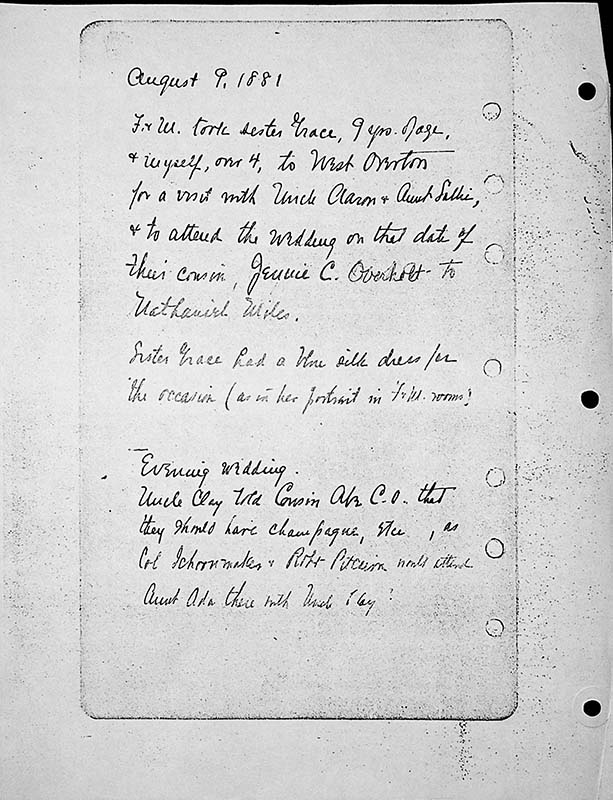 August 9, 1881
F. & M. took sister Grace, 9 yrs. of age,
& myself, over 4, to West Overton
for a visit with Uncle Aaron & Aunt Sallie,
& to attend the wedding on that date of
their cousin, Jennie C. Overholt to
Nathaniel Miles.
Sister Grace had a blue silk dress for
the occasion (as in her portrait in F. & M. rooms)
Evening wedding.
Uncle Clay told Cousin Abe C.O. that
they should have champagne, etc., as
Col Schoonmaker & Robt Pitcairn would attend
Aunt Ada there with Uncle Clay